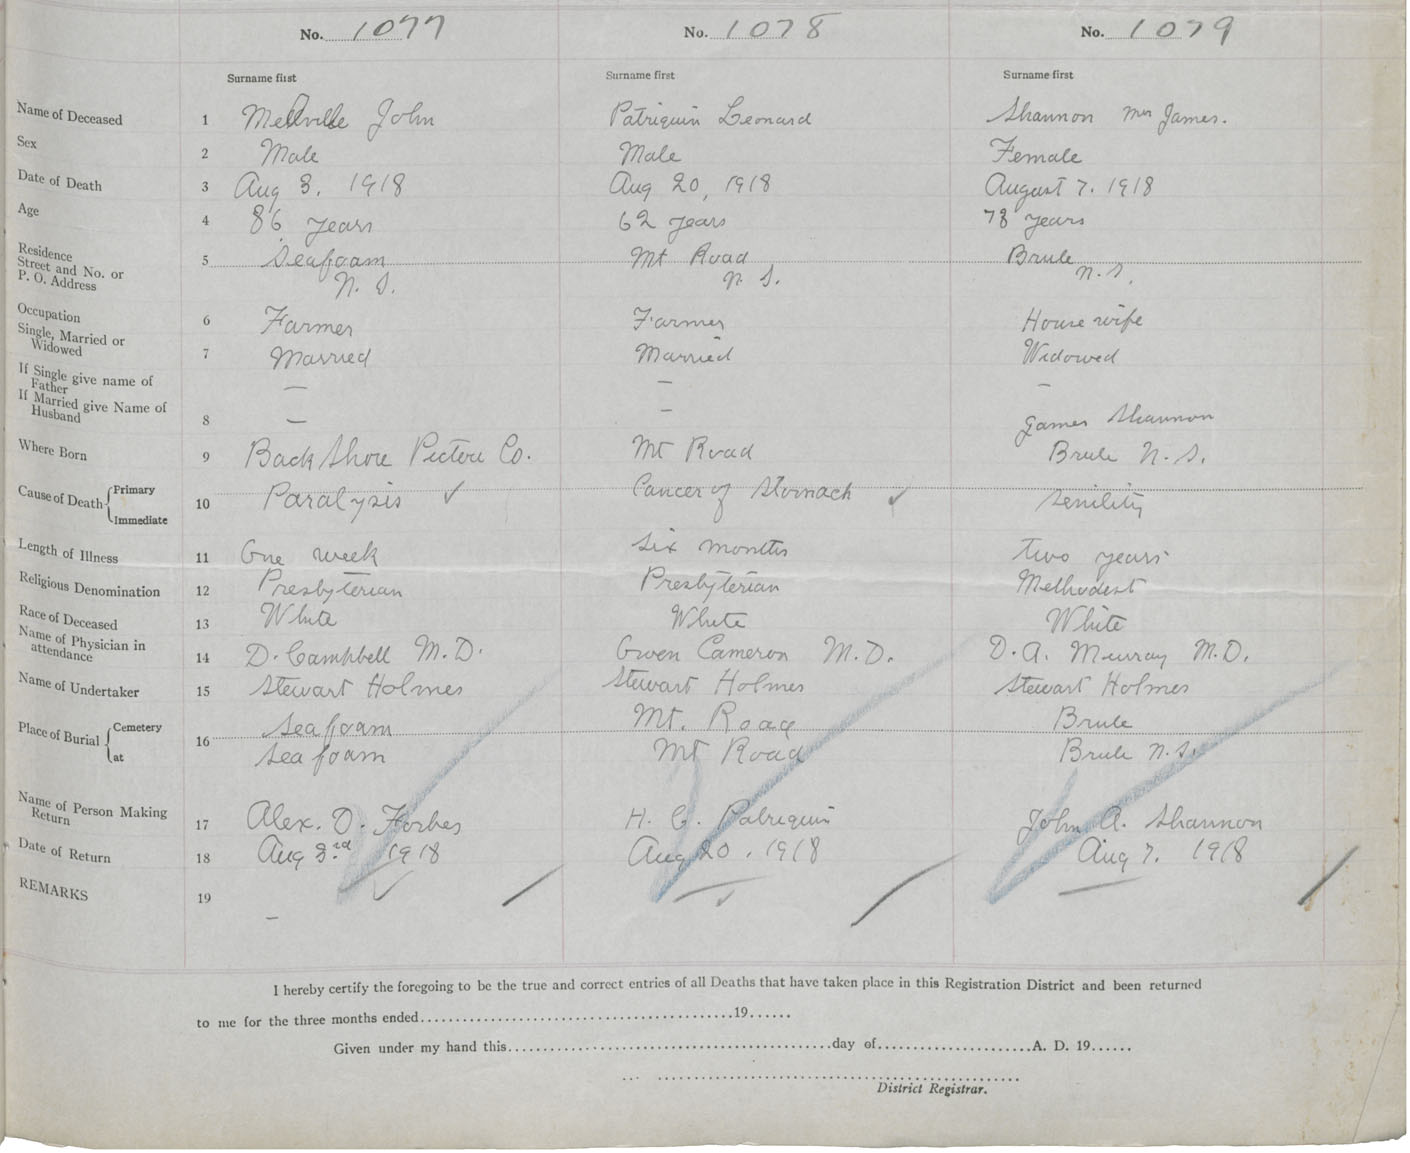 No. 1077 No. 1078 No. 1079
Surname first Surname first Surname first
Name of Deceased 1 Mellville John Patriquin Leonard Shannon Mrs James.
Sex 2 Male Male Female
Date of Death 3 Aug 3. 1918 Aug 20, 1918 August 7. 1918
Age 4 86 years 62 years 78 years
Residence
Street and No. or 5 Seafoam Mt Road Brule
P. O. Address N. S. N. S. N. S.
Occupation 6 Farmer Farmer House wife
Single, Married or
Widowed 7 Married Married Widowed
If Single give name of
Father — — —
If Married give Name of
Husband 8 — — James Shannon
Where Born 9 Back Shore Pictou Co. Mt Road Brule N. S.
Cause of Death { Primary
10 Paralysis ✓ Cancer of Stomach ✓ Senility
Immediate
Length of Illness 11 One week Six months Two years
Religious Denomination 12 Presbyterian Presbyterian Methodist
Race of Deceased 13 White White White
Name of Physician in
attendance 14 D. Campbell M.D. Owen Cameron M.D. D. A. Murray M.D.
Name of Undertaker 15 Stewart Holmes Stewart Holmes Stewart Holmes
Place of Burial { Cemetery 16 Seafoam Mt. Road Brule
at Sea foam Mt Road Brule N. S.
Name of Person Making
Return 17 Alex. D. Forbes H. C. Patriquin John A. Shannon
Date of Return 18 Aug 3rd 1918 Aug 20. 1918 Aug 7. 1918
REMARKS 19 —
I hereby certify the foregoing to be the true and correct entries of all Deaths that have taken place in this Registration District and been returned
to me for the three months ended..........19......
Given under my hand this..........day of..........A. D. 19......
District Registrar.